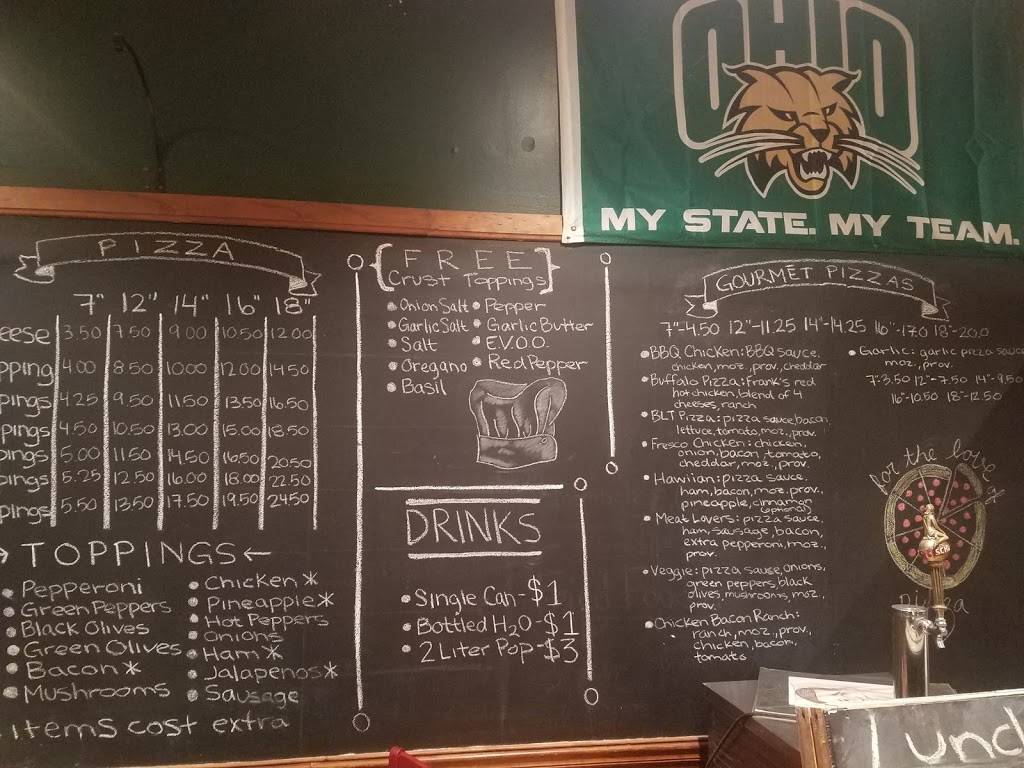 OHIO
MY STATE. MY TEAM.
PIZZA
7" 12" 14" 16" 18"
eese 3.50 7.50 9.00 10.50 12.00
pping 4.00 8.50 10.00 12.00 14.50
pings 4.25 9.50 11.50 13.50 16.50
pings 4.50 10.50 13.00 15.00 18.50
pings 5.00 11.50 14.50 16.50 20.50
pings 5.25 12.50 16.00 18.00 22.50
pings 5.50 13.50 17.50 19.50 24.50
→ TOPPINGS ←
• Pepperoni
• Green Peppers
• Black Olives
• Green Olives
• Bacon *
• Mushrooms
• Chicken *
• Pineapple *
• Hot Peppers
• Onions
• Ham *
• Jalapenos *
• Sausage
items cost extra
{FREE}
Crust Toppings
• Onion Salt • Pepper
• Garlic Salt • Garlic Butter
• Salt • E.V.O.O.
• Oregano • Red Pepper
• Basil
DRINKS
• Single Can - $1
• Bottled H2O - $1
• 2 Liter Pop - $3
GOURMET PIZZAS
7"-4.50 12"-11.25 14"-14.25 16"-17.0 18"-20.0
• BBQ Chicken: BBQ sauce,
chicken, moz, prov, cheddar
• Buffalo Pizza: Frank's red
hot chicken, blend of 4
cheeses, ranch
• BLT Pizza: pizza sauce, bacon,
lettuce tomato, moz, prov.
• Fresco Chicken: chicken
onion, bacon, tomato,
cheddar, moz, prov.
• Hawiian: pizza sauce,
ham, bacon, moz, prov,
pineapple, cinnamon
(optional)
• Meat Lovers: pizza sauce,
ham, sausage, bacon,
extra pepperoni, moz,
prov.
• Veggie: pizza sauce, onions,
green peppers, black
olives, mushrooms, moz,
prov.
• Chicken Bacon Ranch:
ranch, moz, prov,
chicken, bacon,
tomato
• Garlic: garlic pizza sauce
moz, prov.
7"-3.50 12"-7.50 14"-9.50
16"-10.50 18"-12.50
for the love
Lunc